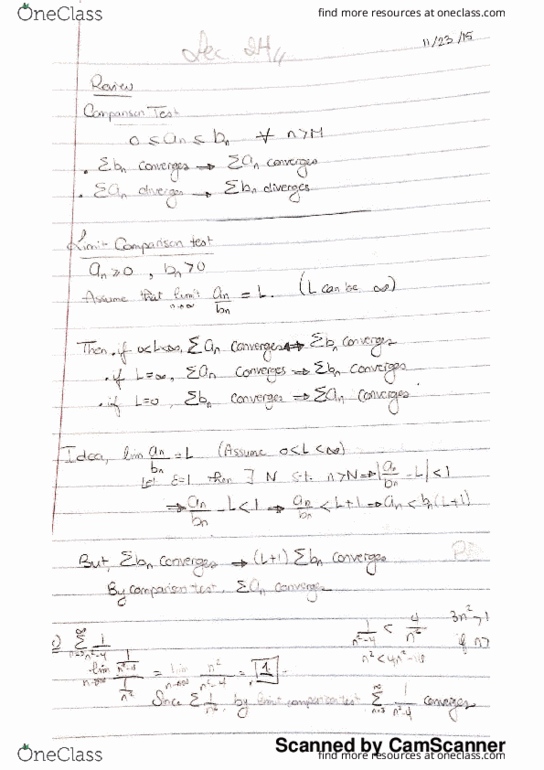 OneClass
find more resources at oneclass.com
Lec. 24
11/23/15
Review
Comparison Test
0 ≤ an ≤ bn ∀ n>M
. Σbn converges → Σan converges
. Σan diverges → Σbn diverges
Limit Comparison test
an ≥ 0 , bn > 0
Assume that limit n→∞ an/bn = L. (L can be ∞)
Then, if 0<L<∞, Σan converges ↔ Σbn converges
. if L=∞, Σan converges ⇒ Σbn converges
. if L=0, Σbn converges ⇒ Σan converges
Idea, lim an/bn = L (Assume 0<L<∞)
Let ε=1 then ∃ N s.t. n>N ⇒ |an/bn - L| < 1
⇒ an/bn - L < 1 ⇒ an/bn < L+1 ⇒ an < bn(L+1)
But, Σbn converges → (L+1) Σbn converges
By comparison test, Σan converges
1/n²-4 < 4/n² 3n²>1
if n>
n² < 4n²-16
Σ 1/n²-4
lim n→∞ 1/n²-4 / 1/n² = lim n→∞ n²/n²-4 = 1
Since Σ 1/n², by limit comparison test Σ n=3 ∞ 1/n²-4 converges
Scanned by CamScanner
OneClass
find more resources at oneclass.com